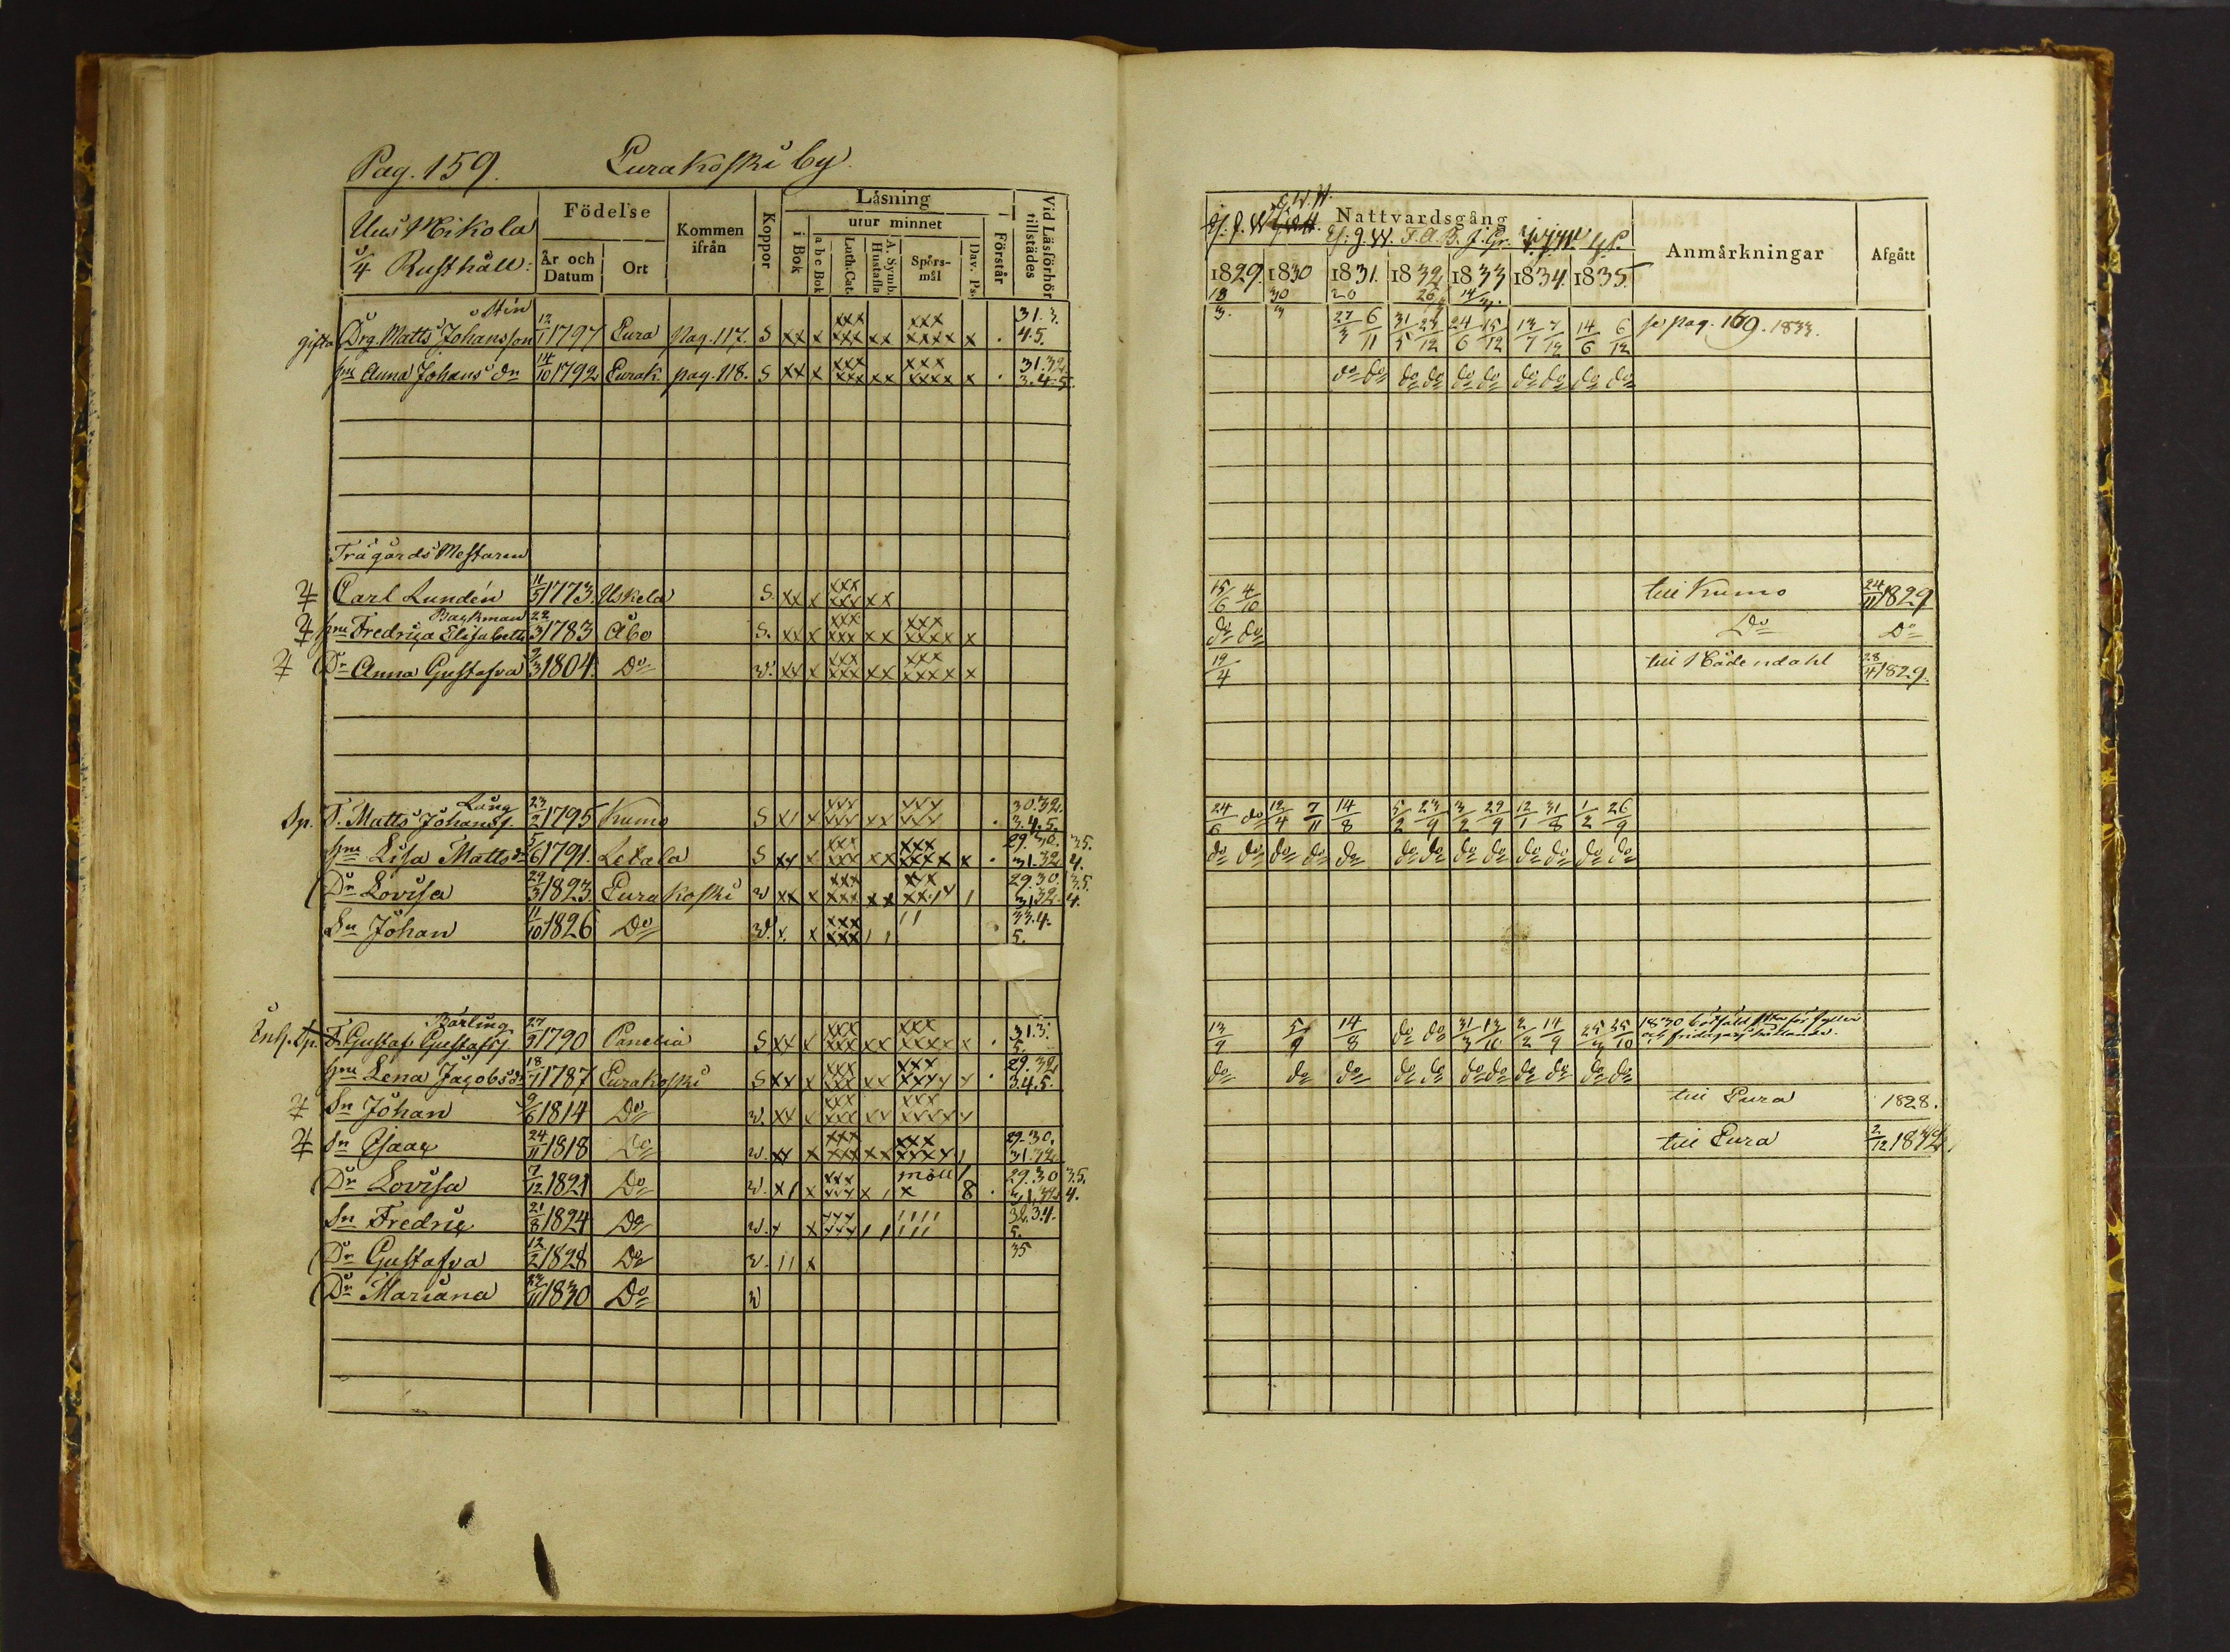 Pag. 159. Eurakoski by
Uus Mikola
1/4 Rusthåll:
Födelse
År och Datum
Ort
Kommen ifrån
Koppor
Läsning
i Bok
utur minnet
a b c Bok
Luth. Cat.
A. Symb.
Hustafla
Spörs-
mål
Dav. Ps.
Förstår
Vid Läsförhör
tillstädes
Nattvardsgång
Anmärkningar
Afgått
1829. 1830 1831. 1832 1833 1834. 1835.
gifta Drg. Matts Johansson 12/1 1797 Eura Pag. 117. S xx x xxx xxx xx xxx xxxx x . 31.3. 4.5. 27/3 6/11 31/5 23/12 24/6 15/12 13/7 7/12 14/6 6/12 se pag. 169. 1833.
hu Anna Johans dr 14/10 1792 Eurak. pag. 118. S xx x xxx xxx xx xxx xxxx x . 31.32. 3.4.5. do do do do do do do do do do
Trägårds Mestaren
Carl Lundén 11/5 1773. Uskela S. xx x xxx xxx xx 15/6 4/10 till Kumo 24/11 1829
Backman
hu Fredrica Elisabeth 22/3 1783 Åbo S. xx x xxx xxx xx xxx xxxx x do do Do Do
Dr Anna Gustafva 9/3 1804. Do w. xx x xxx xxx xx xxx xxxx x 19/4 till Nådendahl 28/4 1829.
Lång
Sp. T. Matts Johanss. 23/2 1795 Kumo S x1 x xxx xxx xx xxx xxx . 30.32. 3.4.5. 24/6 do 12/4 7/11 14/8 5/2 23/9 3/2 29/9 12/1 31/8 1/2 26/9
hu Lisa Matts dr 5/6 1791. Letala S xx x xxx xxx xx xxx xxxx x . 29.30. 35. 31.32 4. do do do do do do do do do do do do do
Dr Lovisa 29/3 1823. Eurakoski w xx x xxx xxx xx 1 29.30. 35. 31.32. 4.
Sn Johan 11/10 1826 Do w. x. x xxx xxx 1 1 11 33.4. 5.
Bärling
T. Gustaf Gustafss. 27/7 1790 Panelia S xx x xxx xxx xx xxx xxxx x . 31.3. 5. 13/9 5/9 14/8 do do 31/3 13/10 2/2 14/9 25/3 25/10
hu Lena Jacobs dr 18/7 1787 Eurakoski S xx x xxx xxx xx xxx xxxx x . 29.32 3.4.5. do do do do do do do do do do do
Sn Johan 9/6 1814 Do w. xx x xxx xxx xx xxx xxxx x till Eura 1828.
Sn Isaac 24/11 1818 Do w. xx x xxx xxx xx xxx xxxx 1 29.30. 31.32. till Eura
Dr Lovisa 7/12 1821 Do w. x1 x xxx xxx x 1 x 8 . 29.30 35. 31.32 4.
Sn Fredric 21/8 1824 Do w. x x xxx xxx 1 1 1111 111 32.3.4. 5.
Dr Gustafva 12/2 1828 Do w. 11 x 35
Dr Mariana 1830 Do w